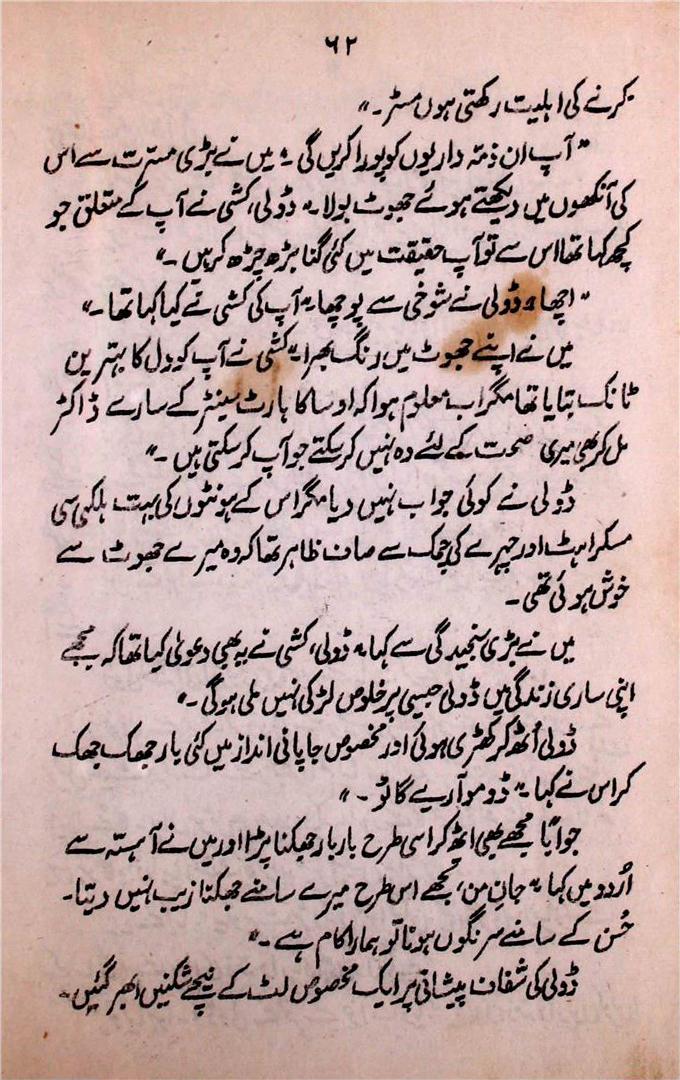 ۶۲
کرنے کی اہلیت رکھتی ہوں مسٹر۔"
"آپ ان ذمّہ داریوں کو پورا کریں گی۔" میں نے بڑی مسّرت سے اس
کی آنکھوں میں دیکھتے ہوئے جھوٹ بولا۔ "ڈولی، کشی نے آپ کے متعلق جو
کچھ کہا تھا اس سے تو آپ حقیقت میں کئی گنا بڑھ چڑھ کر ہیں۔"
"اچھا" ڈولی نے شوخی سے پوچھا۔ "آپ کی کشی نے کیا کہا تھا۔"
میں نے اپنے جھوٹ میں رنگ بھرا۔ "کشی نے آپ کو دل کا بہترین
ٹانک بتایا تھا مگر اب معلوم ہوا کہ اوساکا ہارٹ سینٹر کے سارے ڈاکٹر
مل کر بھی میری صحت کے لئے وہ نہیں کر سکتے جو آپ کر سکتی ہیں۔"
ڈولی نے کوئی جواب نہیں دیا مگر اس کے ہونٹوں کی بہت ہلکی سی
مسکراہٹ اور چہرے کی چمک سے صاف ظاہر تھا کہ وہ میرے جھوٹ سے
خوش ہوئی تھی۔
میں نے بڑی سنجیدگی سے کہا۔ "ڈولی، کشی نے یہ بھی دعویٰ کیا تھا کہ مجھے
اپنی ساری زندگی میں ڈولی جیسی پرخلوص لڑکی نہیں ملی ہوگی۔"
ڈولی اُٹھ کر کھڑی ہوئی اور مخصوص جاپانی انداز میں کئی بار جھک جھک
کر اس نے کہا۔ "ڈومو آریے گاٹو۔"
جواباً مجھے بھی اٹھ کر اسی طرح بار بار جھکنا پڑا اور میں نے آہستہ سے
اُردو میں کہا "جانِ من، تجھے اس طرح میرے سامنے جھکنا زیب نہیں دیتا۔
حُسن کے سامنے سرنگوں ہونا تو ہمارا کام ہے۔"
ڈولی کی شفاف پیشانی پر ایک مخصوص لٹ کے نیچے شکنیں ابھر گئیں۔